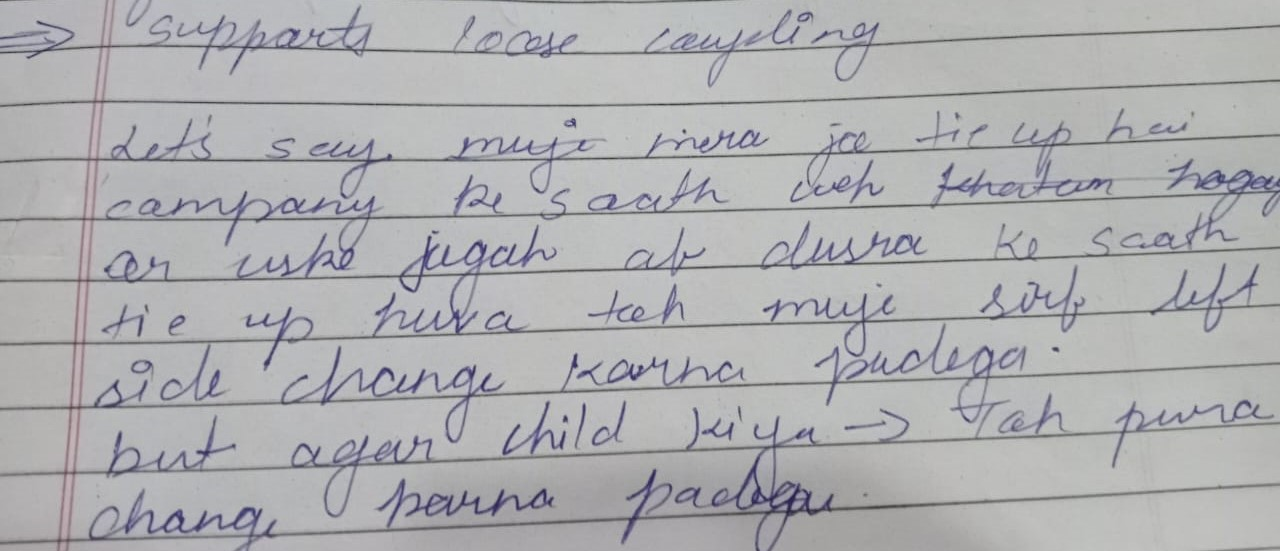 ⇒ supports loose coupling
Let's say. muje mera jo tie up hai
company ke saath woh khatam hogay
or uske jagah ab dusra ke saath
tie up huva toh muje sirf left
side change karna padega.
but agar child kiya → Toh pura
change karna padega.